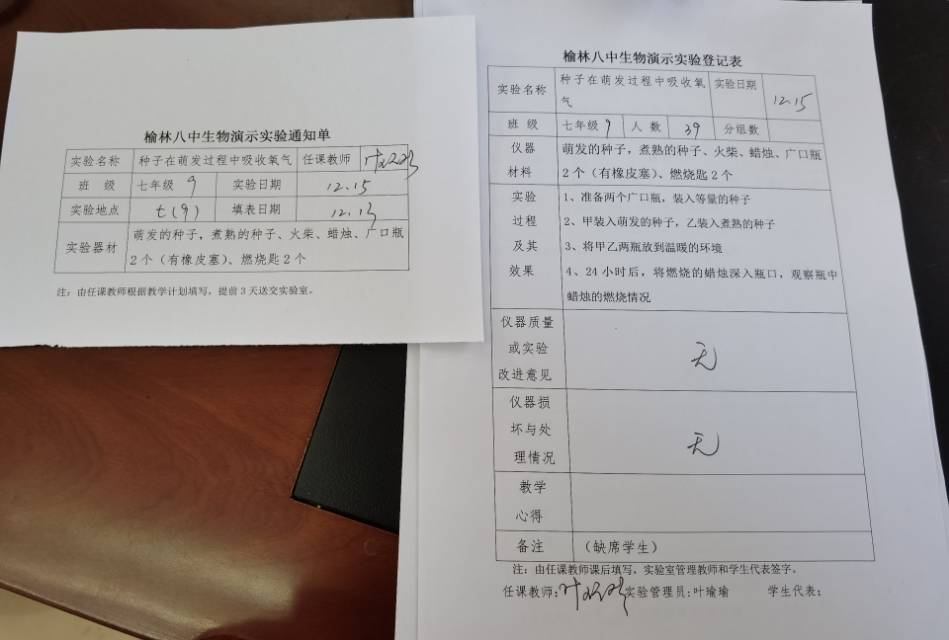 榆林八中生物演示实验通知单
实验名称 种子在萌发过程中吸收氧气 任课教师
班 级 七年级 9 实验日期 12.15
实验地点 七(9) 填表日期 12.13
实验器材 萌发的种子，煮熟的种子、火柴、蜡烛、广口瓶
2个（有橡皮塞）、燃烧匙2个
注：由任课教师根据教学计划填写，提前3天送交实验室。
榆林八中生物演示实验登记表
实验名称 种子在萌发过程中吸收氧气 实验日期 12.15
班 级 七年级 9 人 数 39 分组数
仪器 萌发的种子，煮熟的种子、火柴、蜡烛、广口瓶
材料 2个（有橡皮塞）、燃烧匙2个
实验 1、准备两个广口瓶，装入等量的种子
过程 2、甲装入萌发的种子，乙装入煮熟的种子
及其 3、将甲乙两瓶放到温暖的环境
效果 4、24小时后，将燃烧的蜡烛深入瓶口，观察瓶中
蜡烛的燃烧情况
仪器质量
或实验 无
改进意见
仪器损
坏与处 无
理情况
教学
心得
备注 （缺席学生）
注：由任课教师课后填写，实验室管理教师和学生代表签字。
任课教师： 实验管理员：叶瑜瑜 学生代表：